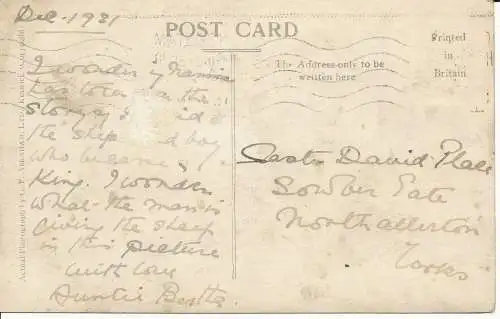 Dec. 1931
POST CARD
The Address only to be
written here
Printed
in
Britain
I wonder if Nannie
has told you the
story of David
the shepherd boy
who became
King. I wonder
what the man is
giving the sheep
in this picture
with love
Auntie Bertha.
Mast: David Place
Sowber Gate
Northallerton
Yorks
Actual Photograph by G. P. Abraham, Ltd., Keswick